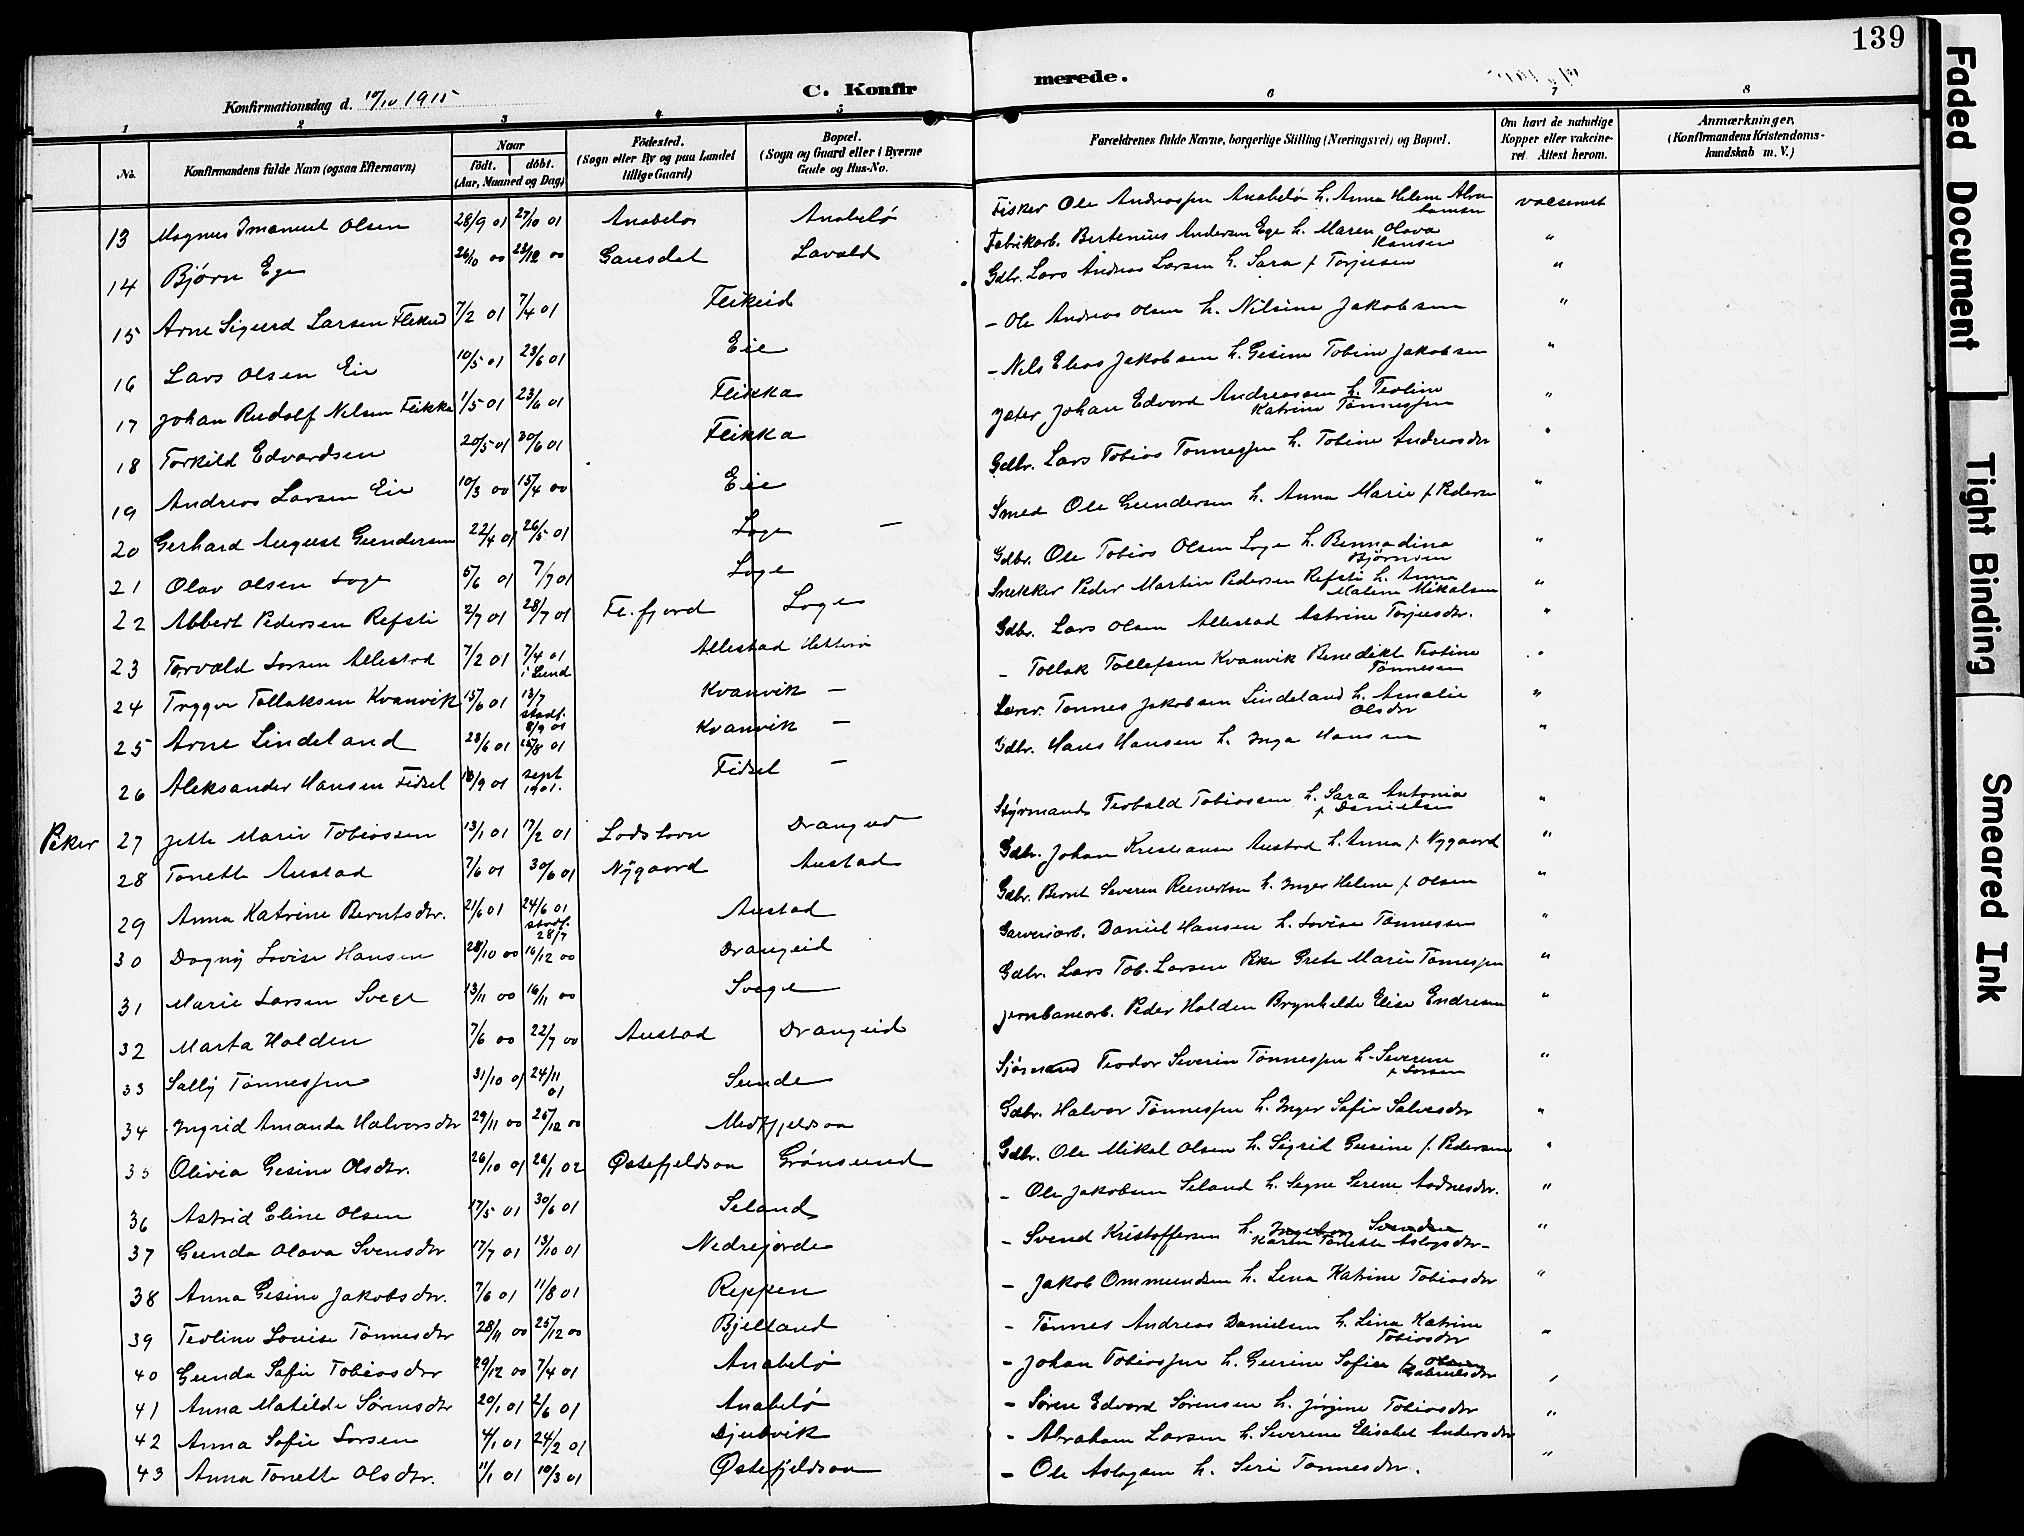 139
Konfirmationsdag d. 10/10 1915
C. Konfirmerede.
1 2 3 4 5 6 7 8
No. Konfirmandens fulde Navn (ogsaa Efternavn) Naar født. døbt. (Aar, Maaned og Dag) Fødested. (Sogn eller By og paa Landet tillige Gaard) Bopæl. (Sogn og Gaard eller i Byerne Gade og Hus-No. Forældrenes fulde Navne, borgerlige Stilling (Næringsvei) og Bopæl. Om havt de naturlige Kopper eller vakcineret. Attest herom. Anmærkninger. (Konfirmandens Kristendomskundskab m. V.)
13 Magnus Imanuel Olsen 28/9 01 27/10 01 Anabelø Anabelø Fisker Ole Andreassen Anabelø h. Anna Helene Abrahamsen vacsineret
14 Bjørn Ege 26/10 00 Gausdal Lavold Fabrikarb. Bertenius Andersen Ege h. Maren Olava Hansen "
15 Arne Sigurd Larsen Flikeid 7/2 01 7/4 01 Flikeid Gdbr. Lars Andreas Larsen h. Sara f. Torjusen "
16 Lars Olsen Eie 10/5 01 23/6 01 Eie - Ole Andreas Olsen h. Nilsine Jakobsen "
17 Johan Rudolf Nilsen Flikka 1/5 01 23/6 01 Flikka - Nils Elias Jakobsen h. Gesine Tobine Jakobsen "
18 Torkild Edvardsen 20/5 01 30/6 01 Flikka Johan Edvard Andreassen h. Teoline Katrine Tønnessen "
19 Andreas Larsen Eie 10/3 00 15/4 00 Eie Gdbr. Lars Tobias Tønnessen h. Tobine Andreasdtr "
20 Gerhard August Gundersen 22/4 01 26/5 01 Loge - Smed Ole Gundersen h. Anna Marie f. Pedersen "
21 Olav Olsen Loge 5/6 01 7/7 01 Loge Gdbr. Ole Tobias Olsen Loge h. Bernadina Bjørnsen "
22 Albert Pedersen Refsti 2/7 01 28/7 01 Fl.fjord Loge Snekker Peder Martin Pedersen Refsti h. Anna Malene Mikalsen "
23 Torvald Larsen Allestad 7/2 01 7/4 01 i Lund Allestad Gdbr. Lars Olsen Allestad Astrine Torjusdtr. "
24 Trygve Tollaksen Kvanvik 15/6 01 13/7 stadf. 8/9 01 Kvanvik - - Tollak Tollefsen Kvanvik Benedikte Teoline Tønnesen "
25 Arne Lindeland 23/6 01 25/8 01 Kvanvik - Lærer. Tønnes Jakobsen Lindeland h. Amalie Olsdtr "
26 Aleksander Hansen Fidsel 18/9 01 sept 1901. Fidsel - Gdbr. Hans Hansen h. Inga Hansen "
Piker 27 Jette Marie Tobiassen 13/1 01 17/2 01 Lodshavn Drangeid Styrmand Teobald Tobiassen h. Sara Antonia f. Danielsen "
28 Tonette Austad 7/6 01 30/6 01 Nygaard Austad Gdbr. Johan Kristiansen Austad h. Anna f. Nygaard "
29 Anna Katrine Berntsdtr. 21/6 01 24/6 01 stadf. 28/7 Austad Gdbr. Bernt Severin Reinertsen h. Inger Helene f. Olsen "
30 Dagny Lovise Hansen 28/10 00 16/12 00 Drangeid Garveriarb. Daniel Hansen h. Lovise Tønnessen "
31 Marie Larsen Svege 13/11 00 16/11 00 Svege Gdbr. Lars Tob. Larsen Grete Marie Tønnessen "
32 Marta Holden 7/6 00 22/7 00 Austad Drangeid Jernbanearb. Peder Holden Brynhilde Elise Endresen "
33 Sally Tønnessen 31/10 01 24/11 01 Sunde Sjømand Teodor Severin Tønnessen h. Severine f. Larsen "
34 Ingrid Amanda Halvorsdtr 29/11 00 26/12 00 Medfjeldsaa Gdbr. Halvor Tønnessen h. Inger Sofie Salvesdtr "
35 Olivia Gesine Olsdtr. 26/10 01 26/1 02 Østefjeldsaa Grønsund Gdbr. Ole Mikal Olsen h. Sigrid Gurine f. Pedersen "
36 Astrid Eline Olsen 17/5 01 30/6 01 Seland - Ole Jakobsen Seland h. Signe Serene Aadnesdtr. "
37 Gunda Olava Svensdtr 17/7 01 13/10 01 Nedrejorde - Svend Kristoffersen h. Ingeborg Svendsen Karen Tonette Aslagsdtr- "
38 Anna Gesine Jakobsdtr. 7/6 01 11/8 01 Reppen - Jakob Ommundsen h. Lena Katrine Tobiasdtr "
39 Teoline Lovise Tønnesdtr 28/11 00 25/12 00 Bjelland - Tønnes Andreas Danielsen h. Lina Katrine Tobiasdtr "
40 Gunda Sofie Tobiasdtr 29/12 00 7/4 01 Anabelø - Johan Tobiassen h. Gurine Sofie f. Olsen Gabrielsdtr "
41 Anna Matilde Sørensdtr 20/1 01 2/6 01 Anabelø - Søren Edvard Sørensen h. Jørgine Tobiasdtr "
42 Anna Sofie Larsen 4/1 01 24/2 01 Djubvik - Abraham Larsen h. Severine Elisabet Andersdtr "
43 Anna Tonette Olsdtr. 11/1 01 10/3 01 Østefjeldsaa - Ole Aslagsen h. Seri Tønnesdtr.
Faded Document
Tight Binding
Smeared Ink